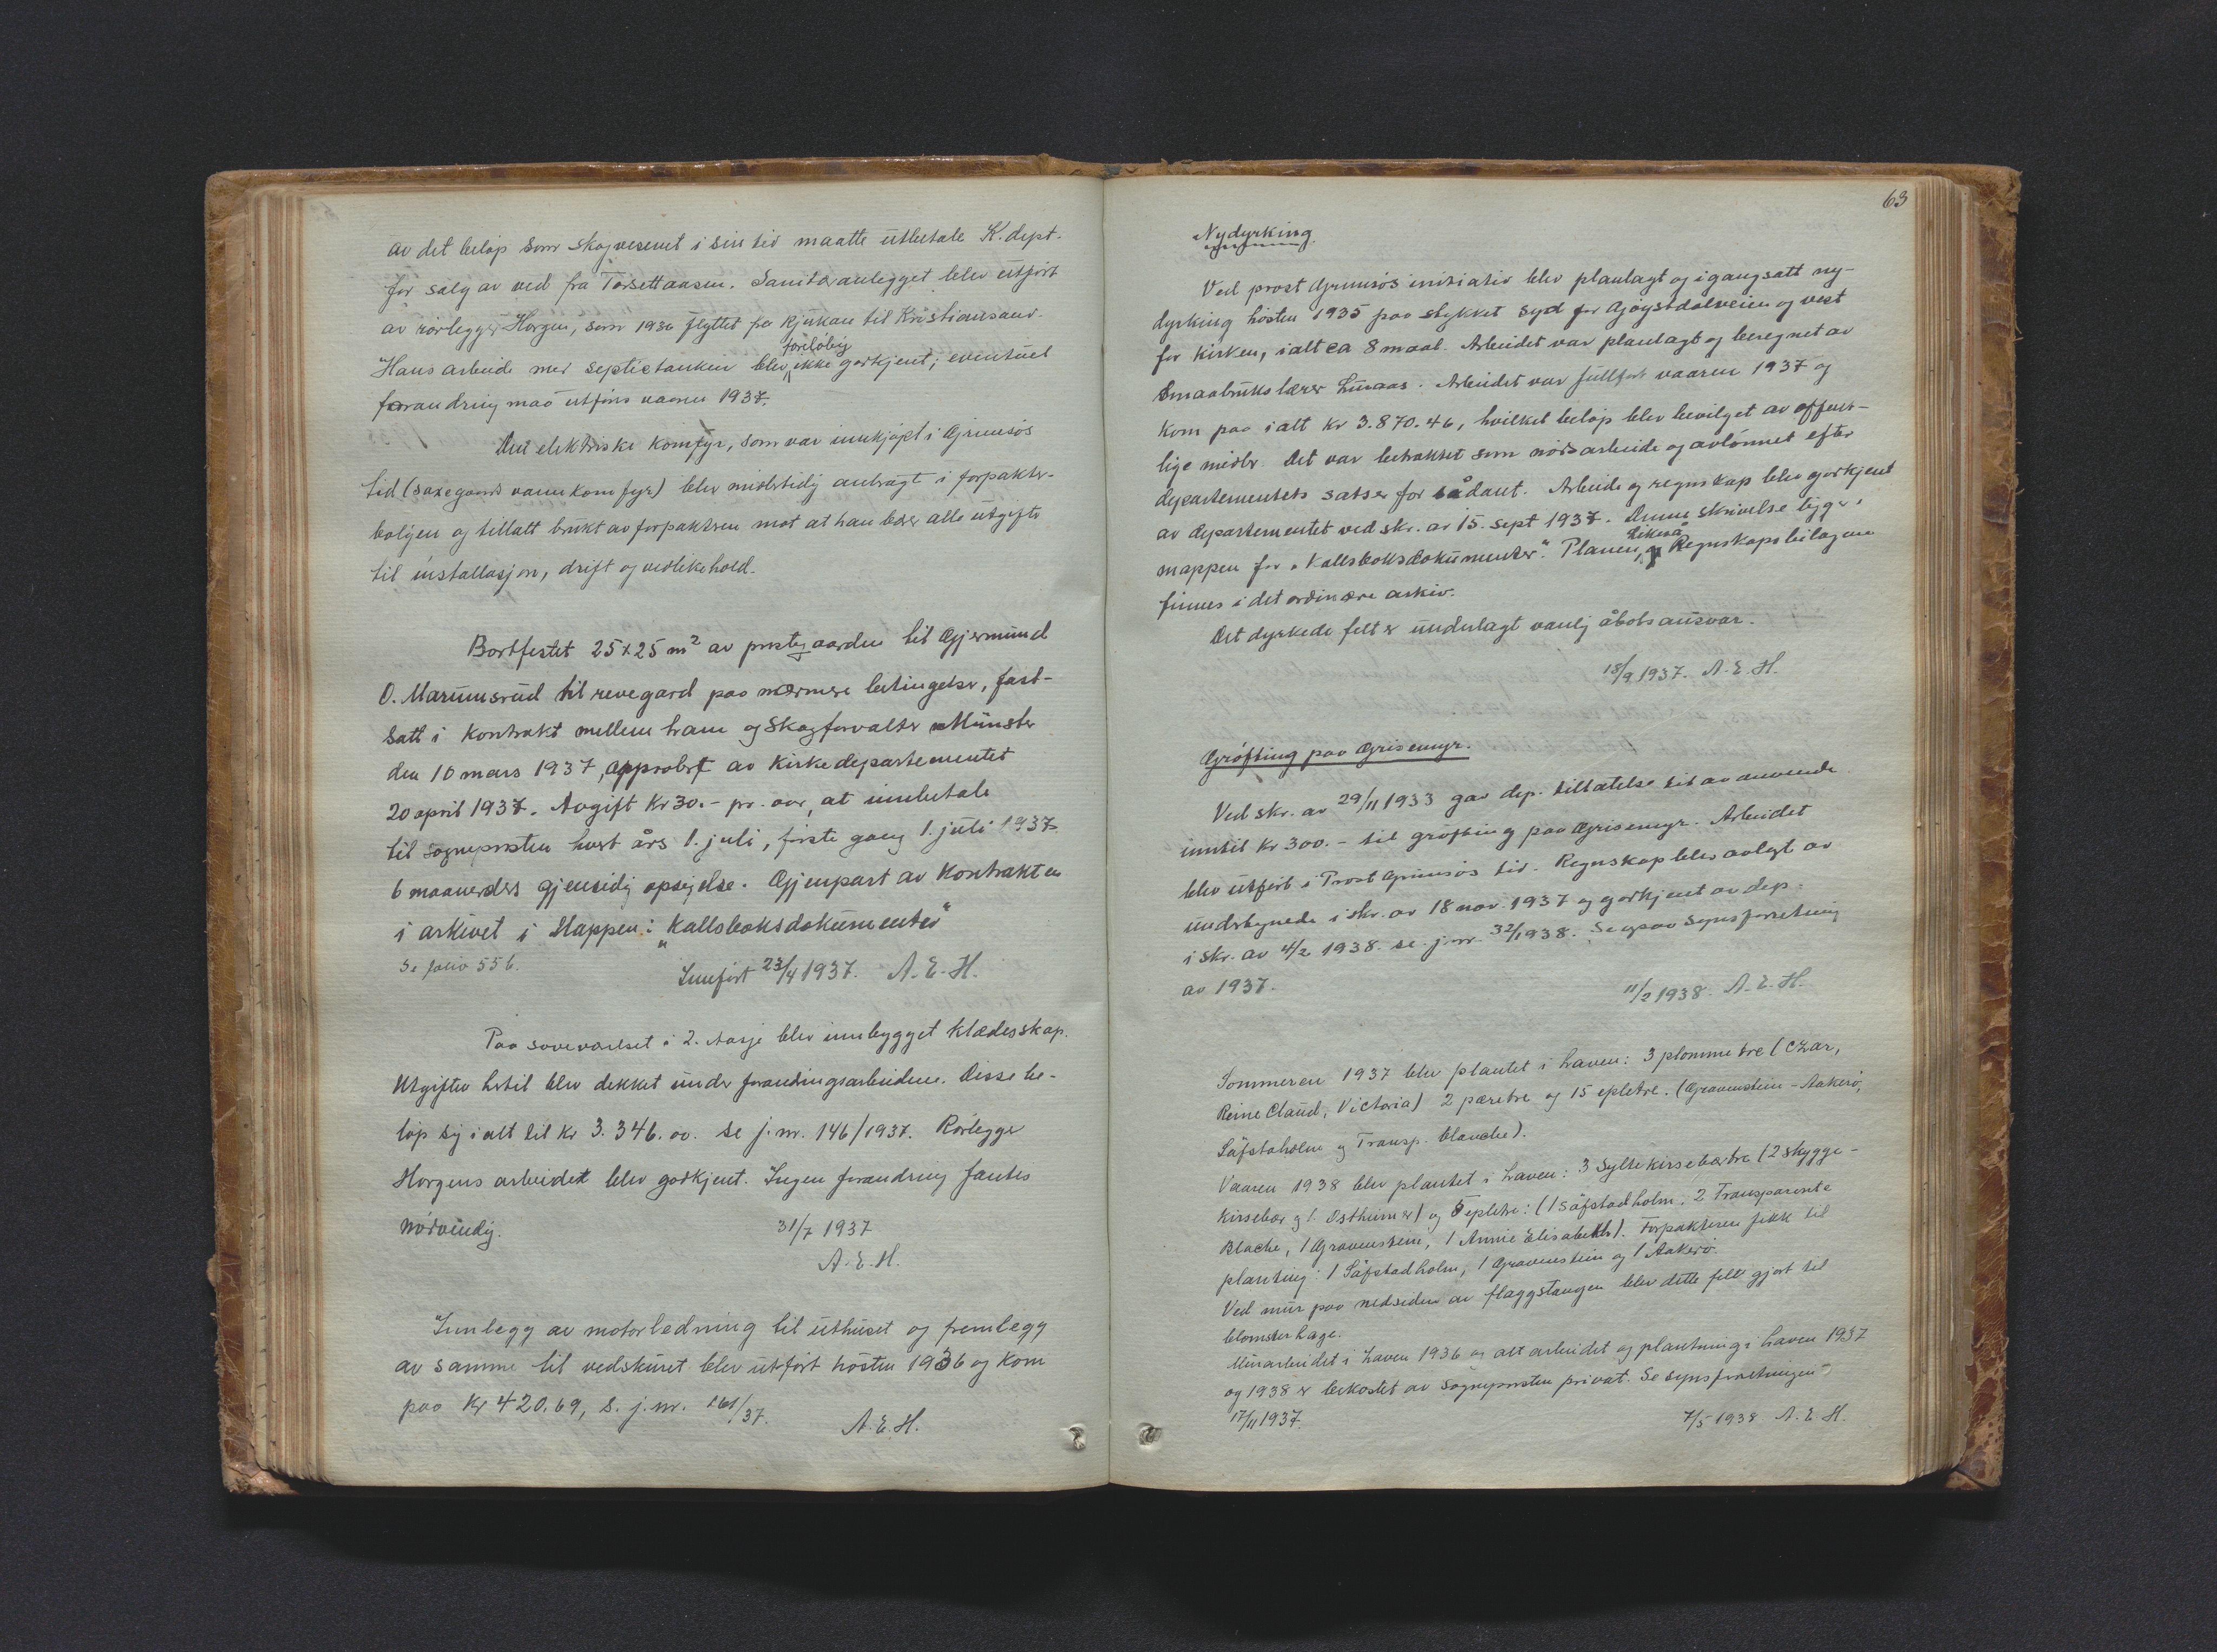 av det beløp som skogvesenet i sin tid maatte utbetale K.dept.
for salg av ved fra Torsettaasen. Sanitæranlegget blev utført
av rørlegger Horgen, som 1936 flyttet fra Rjukan til Kristiansand.
foreløbig
Hans arbeide med septictanken blev ikke godkjent; eventuel
forandring maa utføres vaaren 1937.
Den elektriske komfyr, som var innkjøpt i Grimsøs
tid (saxegaard vannkomfyr) blev midlertidig anbragt i forpakter-
boligen og tillatt brukt av forpakteren mot at han bærer alle utgifter
til installasjon, drift og vedlikehold.
Bortfestet 25x25 m² av prestegaarden til Gjermund
O. Marumsrud til revegard paa nærmere betingelser, fast-
satt i kontrakt mellem ham og Skogforvalter Münster
den 10 mars 1937, approbert av Kirkedepartementet
20 april 1937. Avgift Kr 30.- pr. aar, at innbetale
til sogneprsten hvert års 1. juli, første gang 1. juli 1937.
6 maaneders gjensidig opsigelse. Gjenpart av Kontrakten
i arkivet i Mappen: "Kallsboksdokumenter"
Se folio 55 b.
Innført 23/4 1937. A. E. H.
Paa soveværelset i 2. etasje blev innbygget klædesskap.
Utgifter hertil blev dekket under forandringsarbeidene. Disse be-
løp sig i alt til kr 3.346.00. se j.nr. 146/1937. Rørlegger
Horgens arbeidet blev godkjent. Ingen forandring fantes
nødvendig. 31/7 1937
A. E. H.
Innlegg av motorledning til uthuset og fremlegg
av samme til vedskuret blev utført høsten 1936 og kom
paa Kr 420.69, s. j.nr. 161/37.
A. E. H.
63
Nydyrking.
Ved prost Grimsøs initiativ blev planlagt og igangsatt ny-
dyrking høsten 1935 paa stykket syd for Gjøystdalveien og vest
for kirken, ialt ca 8 maal. Arbeidet var planlagt og beregnet av
Smaabrukslærer Luraas. Arbeidet var fullført vaaren 1937 og
kom paa ialt kr 3.870.46, hvilket beløp blev bevilget av offent-
lige midler. Det var betraktet som nødsarbeide og avlønnet efter
departementets satser for sådant. Arbeide og regnskap blev godkjent
av departementet ved skr. av 15. sept 1937. Denne skrivelse ligger i
likeså
mappen for "Kallsboksdokumenter". Planen, og Regnskapsbilagene
finnes i det ordinære arkiv.
Det dyrkede felt er underlagt vanlig åbotsansvar.
18/9 1937. A. E. H.
Grøfting paa Grisemyr.
Ved skr. av 29/11 1933 gav dep. tillatelse til av anvende
inntil Kr 300.- til grøfting paa Grisemyr. Arbeidet
blev utført i Prost Grimsøs tid. Regnskap blev avlagt av
undertegnede i skr. av 18 nov. 1937 og godkjent av dep.
i skr. av 4/2 1938. se j.nr. 32/1938. Se ogsaa Synsforretning
av 1937.
11/2 1938. A. E. H.
Sommeren 1937 blev plantet i haven: 3 plommetre (Czar,
Reine Claud, Victoria) 2 pæretre og 15 epletre. (Gravenstein - Aakerö,
Säfstaholm og Transp. blanche).
Vaaren 1938 blev plantet i haven: 3 Syltekirsebærtre (2 skygge-
kirsebær og 1 Ostheimer) og 5 epletre: (1 Säfstadholm, 2 Transparente
Blache, 1 Gravenstein, 1 Annie Elisabeth). Forpakteren fikk til
planting: 1 Säfstadholm, 1 Gravenstein og 1 Aakerö.
Ved mur paa nedsiden av flaggstangen blev dette felt gjort til
blomsterhage.
Murarbeidet i haven 1936 og alt arbeidet og plantning i haven 1937
og 1938 er bekostet av sogneprsten privat. Se synsforretningen
17/11 1937.
7/5 1938 A. E. H.